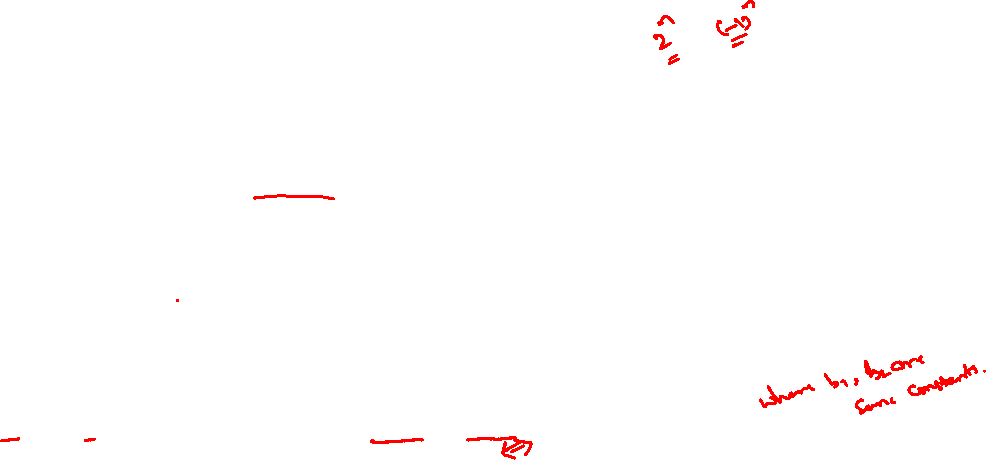 2ⁿ (-1)ⁿ
where b₁, b₂ are
some constants.